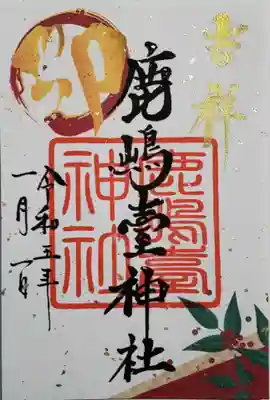 吉祥
卯
鹿嶋臺神社
鹿嶋臺
神社
令和五年
一月一日